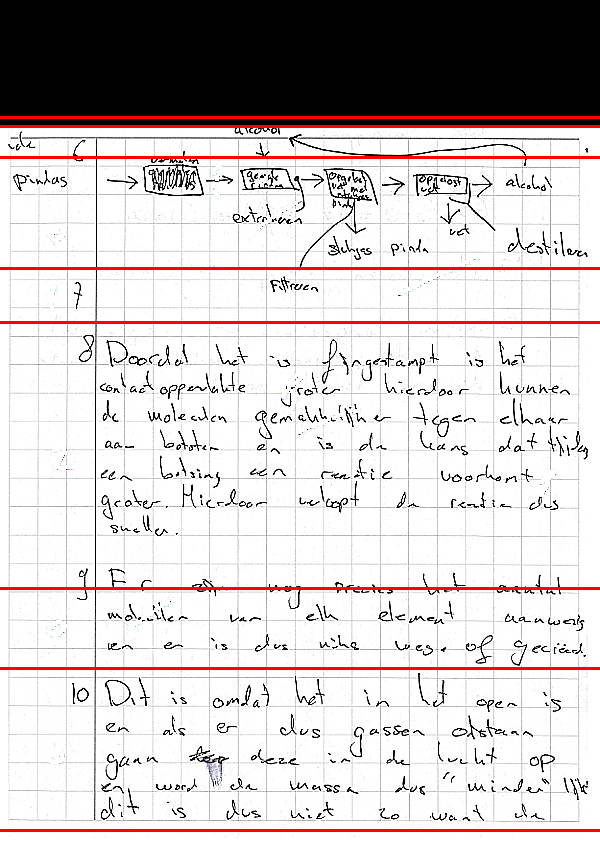 alcohol
6
pindas
gemalen pinda
opgelost vet
alcohol
extraheren
vet
stukjes pinda
destileren
Filtreren
7
8 Doordat het is fijngestampt is het
contactoppervlakte groter hierdoor kunnen
de moleculen gemakkelijker tegen elkaar
aan botsten en is de kans dat tijdens
een botsing een reactie voorkomt
groter. Hierdoor verloopt de reactie dus
sneller.
9 Er zijn nog precies het aantal
moleculen van elk element aanwezig
en er is dus niks weg. of gecieëd.
10 Dit is omdat het in het open is
en als er dus gassen otstaan
gaan deze in de lucht op
en word de massa dus "minder" lijkt
dit is dus niet zo want de